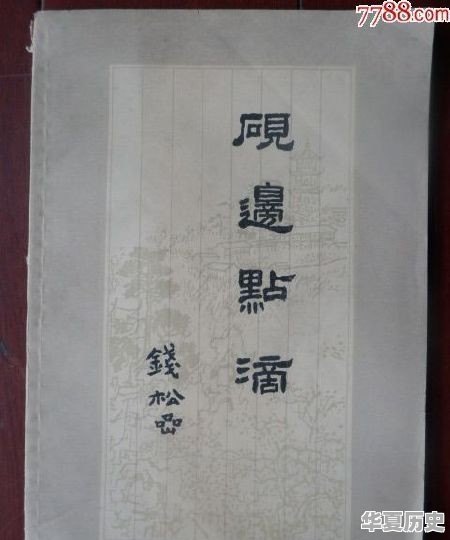 7788.com
硯邊點滴
錢松嵒
华夏历史